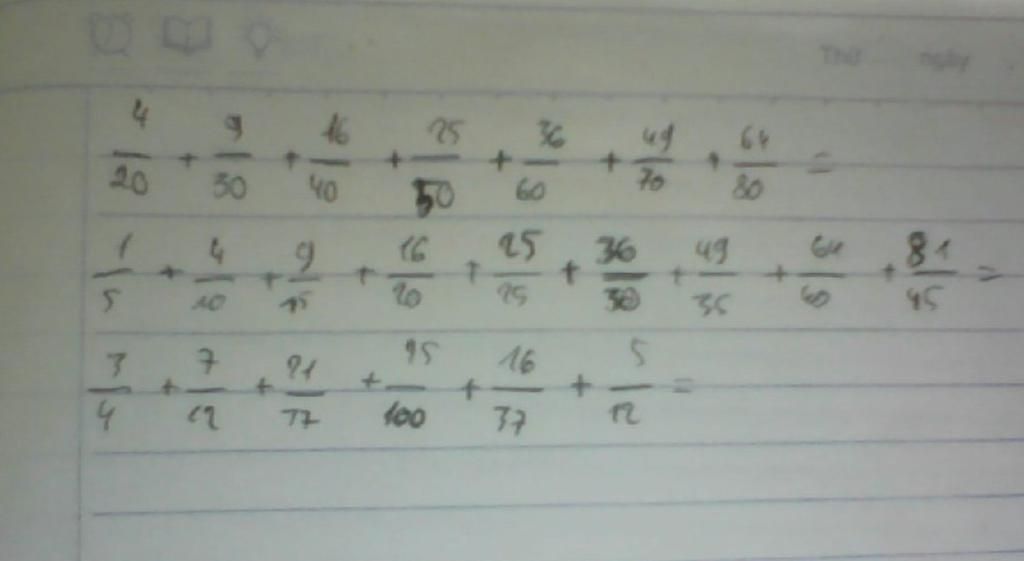 Thứ ngày
4/20 + 9/30 + 16/40 + 25/50 + 36/60 + 49/70 + 64/80 =
1/5 + 4/10 + 9/15 + 16/20 + 25/25 + 36/30 + 49/35 + 64/40 + 81/45 =
3/4 + 7/12 + 21/37 + 25/100 + 16/37 + 5/12 =